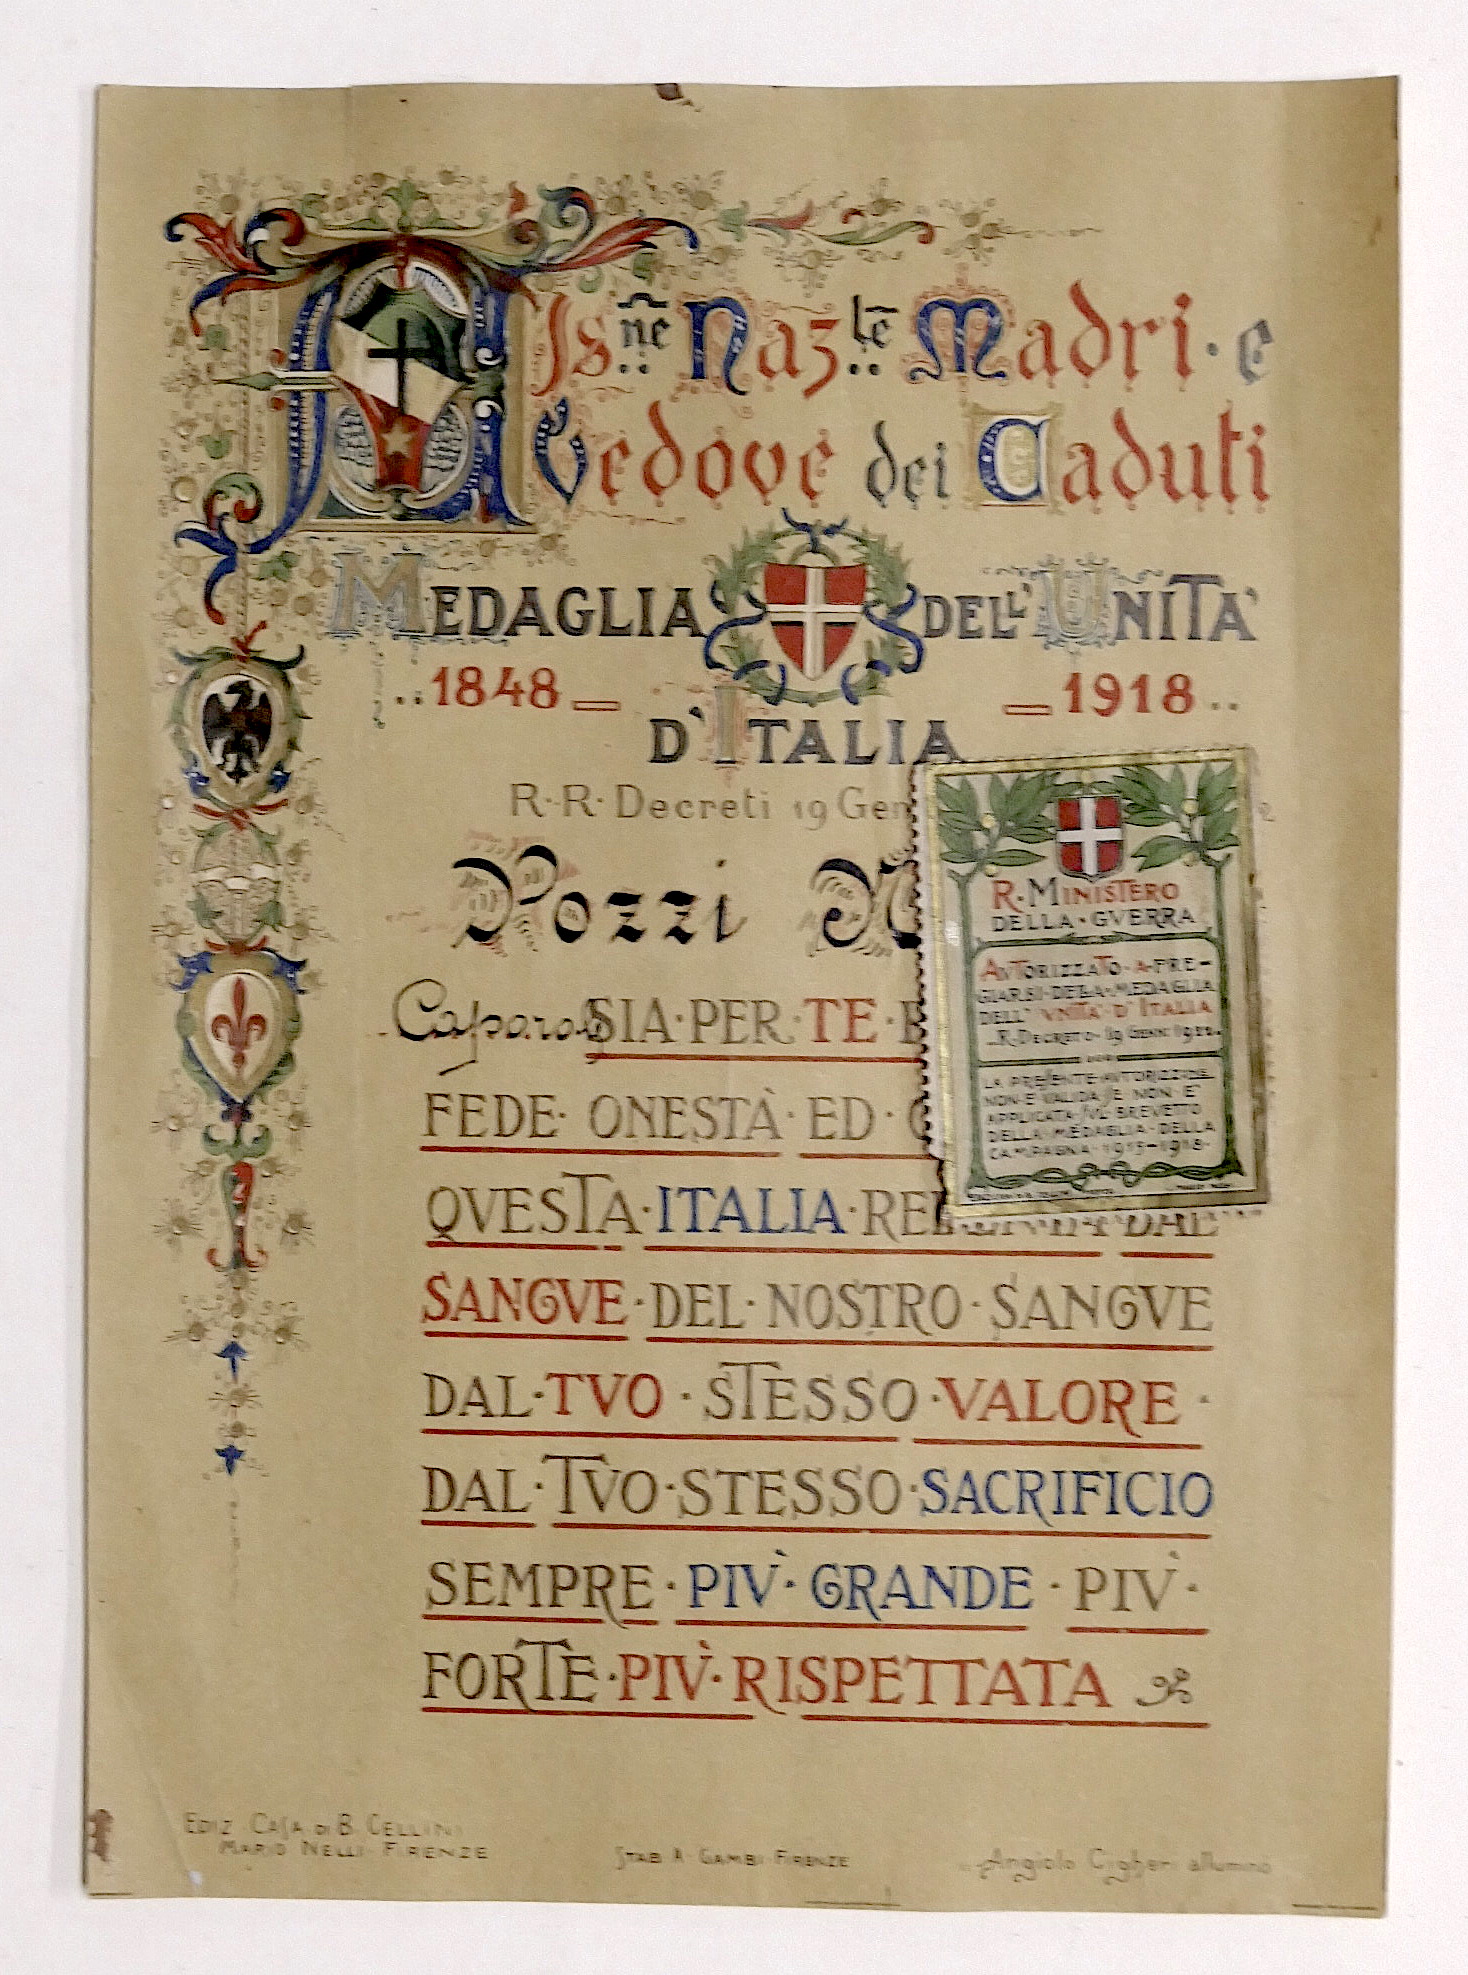 A Is.ne Naz.le Madri · e
Vedove dei Caduti
MEDAGLIA DELL' UNITA'
..1848 — — 1918..
D'ITALIA
R·R· Decreti 19 Gen
Pozzi
Caporal SIA·PER·TE·
FEDE· ONESTÀ· ED·
QVESTA·ITALIA· DAL
SANGVE·DEL·NOSTRO·SANGVE
DAL·TVO·STESSO·VALORE·
DAL·TVO·STESSO·SACRIFICIO
SEMPRE·PIV̀·GRANDE·PIV̀·
FORTE·PIV̀·RISPETTATA
R·MINISTERO
DELLA·GVERRA
AVTORIZZATO·A·FRE-
GIARSI·DELLA·MEDAGLIA
DELL'VNITA'D'ITALIA
R·DECRETO·19 GENN·1922.
LA PRESENTE·AVTORIZZ·NE
NON·E' VALIDA·SE NON·E'
APPLICATA·SVL·BREVETTO
DELLA·MEDAGLIA·DELLA
CAMPAGNA·1915-1918·
EDIZ. CASA·DI B. CELLINI
MARIO NELLI·FIRENZE
STAB A·GAMBI·FIRENZE
Angiolo Cigheri alluminò